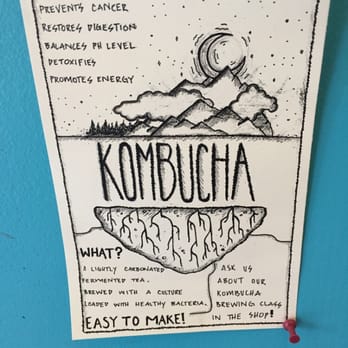 PREVENTS CANCER
RESTORES DIGESTION
BALANCES PH LEVEL
DETOXIFIES
PROMOTES ENERGY
KOMBUCHA
WHAT?
A LIGHTLY CARBONATED
FERMENTED TEA.
BREWED WITH A CULTURE
LOADED WITH HEALTHY BACTERIA.
EASY TO MAKE!
ASK US
ABOUT OUR
KOMBUCHA
BREWING CLASS
IN THE SHOP!